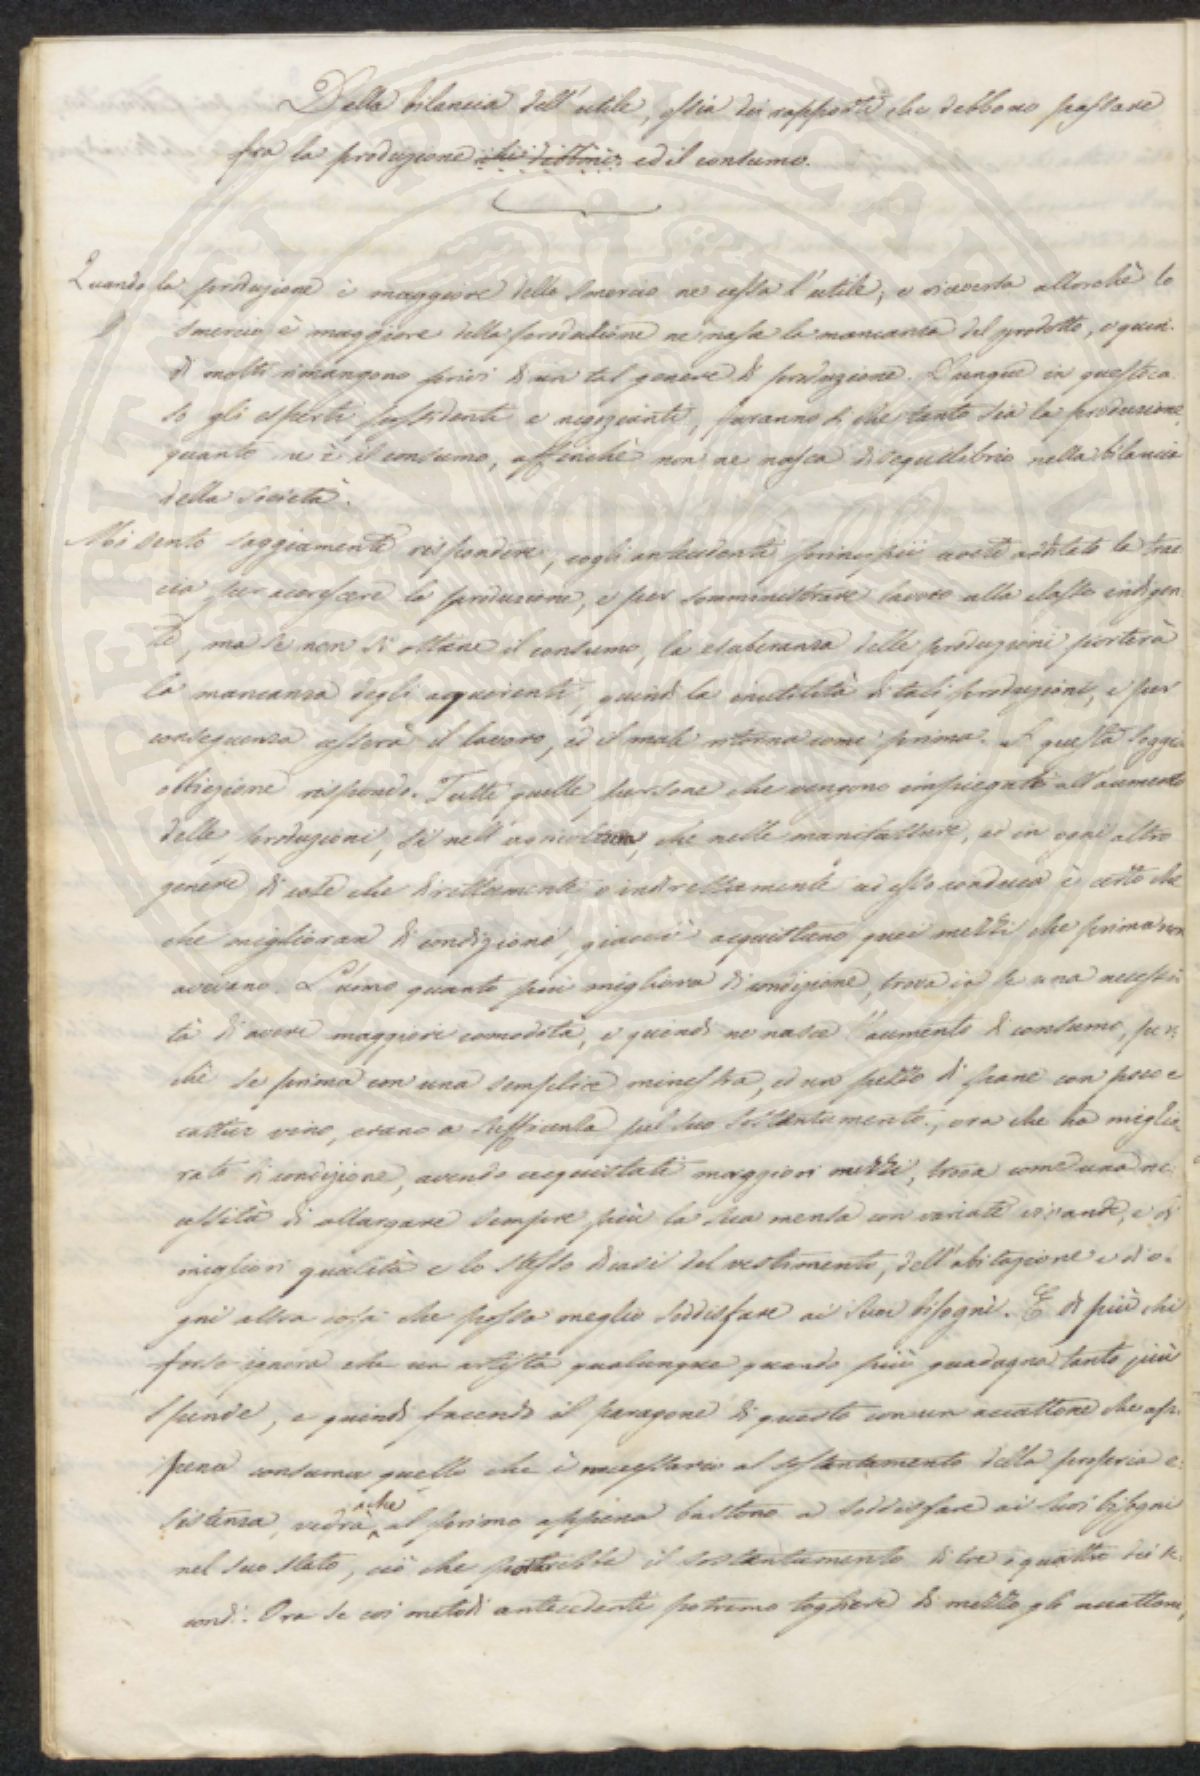 Della bilancia dell'utile, ossia dei rapporti che debbono passare
fra la produzione ed il consumo.
Quando la produzione è maggiore dello smercio ne cessa l'utile, e viceversa allorchè lo
smercio è maggiore della produzione ne nasce la mancanza del prodotto, e quin-
di molti rimangono privi di un tal genere di produzione. Dunque in questo ca-
so gli esperti possidenti e negozianti, faranno sì che tanto sia la produzione,
quanto n'è il consumo, affinchè non ne nasca disequilibrio nella bilancia
della società.
Mi sento saggiamente rispondere, cogli antecedenti principii avete additato la trac-
cia per accrescere la produzione, e per somministrare lavoro alla classe indigen-
te, ma se non si ottiene il consumo, la esuberanza delle produzioni porterà
la mancanza degli acquirenti, quindi la inutilità di tali produzioni, e per
conseguenza cesserà il lavoro, ed il male ritorna come prima. A questa saggia
obbiezione rispondo. Tutte quelle persone che vengono impiegate all'aumento
delle produzioni, sì nell'agricoltura, che nelle manifatture, ed in ogni altro
genere di cose che direttamente o indirettamente ad esso conduca è certo che
che miglioran di condizione, giacchè acquistano quei mezzi che prima non
avevano. L'uomo quanto più migliora di condizione, trova in se una necessi-
tà di avere maggiori comodità, e quindi ne nasce l'aumento di consumo, per-
chè se prima con una semplice minestra, ed un pezzo di pane con poco e
cattivo vino, erano a sufficienza pel suo sostentamento, ora che ha miglio-
rato di condizione, avendo acquistati maggiori mezzi, trova come una ne-
cessità di allargare sempre più la sua mensa con variate vivande, e di
migliori qualità e lo stesso dicasi del vestimento, dell'abitazione e di o-
gni altra cosa che possa meglio soddisfare ai suoi bisogni. E di più chi
forse ignora che un artista qualunque quando più guadagna tanto più
spende, e quindi facendo il paragone di questo con un accattone che ap-
pena consuma quello che è necessario al sostentamento della propria e-
sistenza, vedrà che al primo appena bastono a soddisfare ai suoi bisogni
nel suo stato, ciò che potrebbe il sostentamento di tre o quattro dei se-
condi. Ora se coi metodi antecedenti potremo togliere di mezzo gli accattoni,